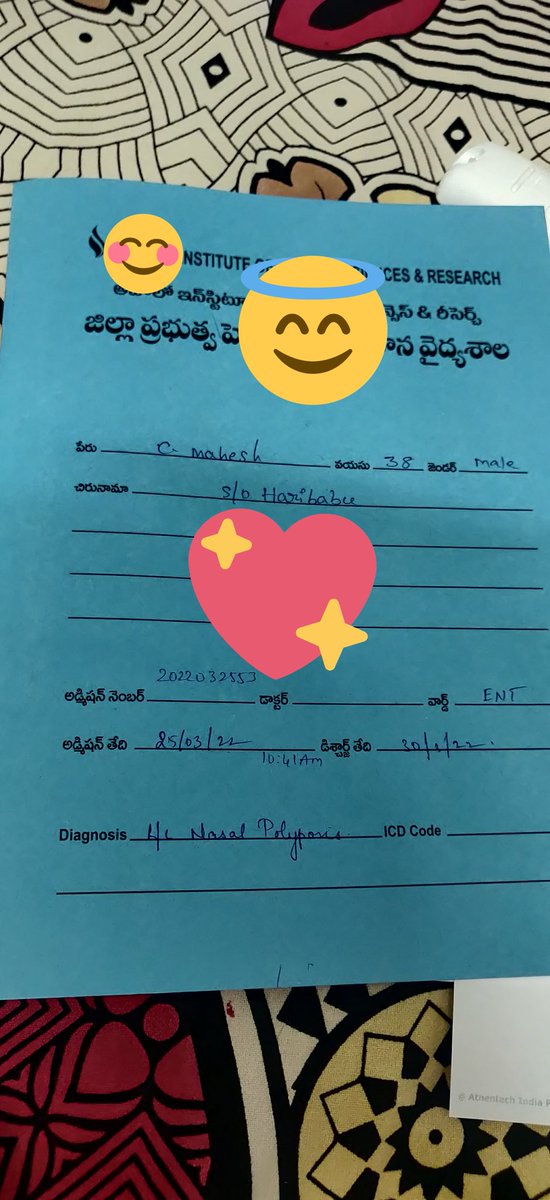 NSTITUTE CES & RESEARCH
ఇన్‌స్టిట్యూ న్సెస్ & రీసెర్చ్
జిల్లా ప్రభుత్వ వైద్యశాల
పేరు C. Mahesh వయసు 38 జెండర్ male
చిరునామా S/o Haribabu
2022032553
అడ్మిషన్ నెంబర్ డాక్టర్ వార్డ్ ENT
అడ్మిషన్ తేది 25/03/22 డిశ్చార్జ్ తేది
10:41 Am
Diagnosis Nasal Polyposis. ICD Code
© Athentech India P